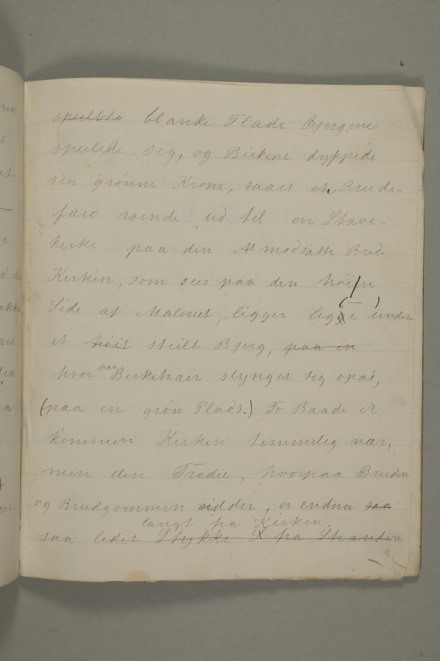 speillte blanke Flade Bjergene
speilede sig, og Birkene dyppede
sin grønne Krone, saaes et Brude-
færd roende ud til en Stave-
kirke paa den modsatte Bred.
Kirken, som sees paa den høire
Side af Maleriet, ligger lige under
et høit steilt Bjerg, paa en
hvor Birketræer slynger sig opad,
(paa en grøn Plads.) To Baade er
kommen Kirken temmelig nær,
men den Tredie, hvorpaa Bruden
og Brudgommen sidder, er endnu saa
langt fra Kirken
saa lidet Stykke fra Stranden